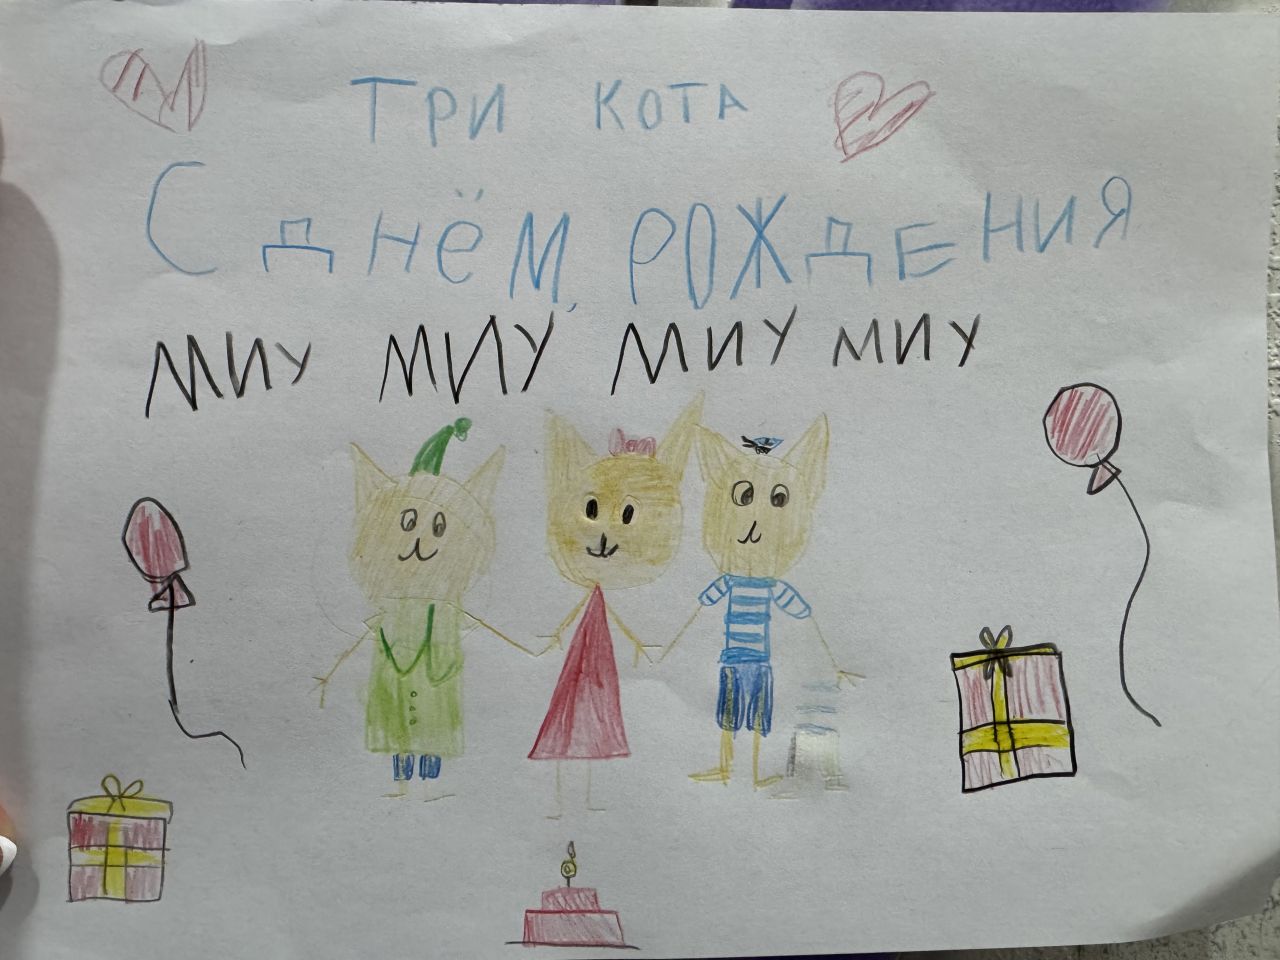 ТРИ КОТА
С ДНЁМ, РОЖДЕНИЯ
МИУ МИУ МИУ МИУ